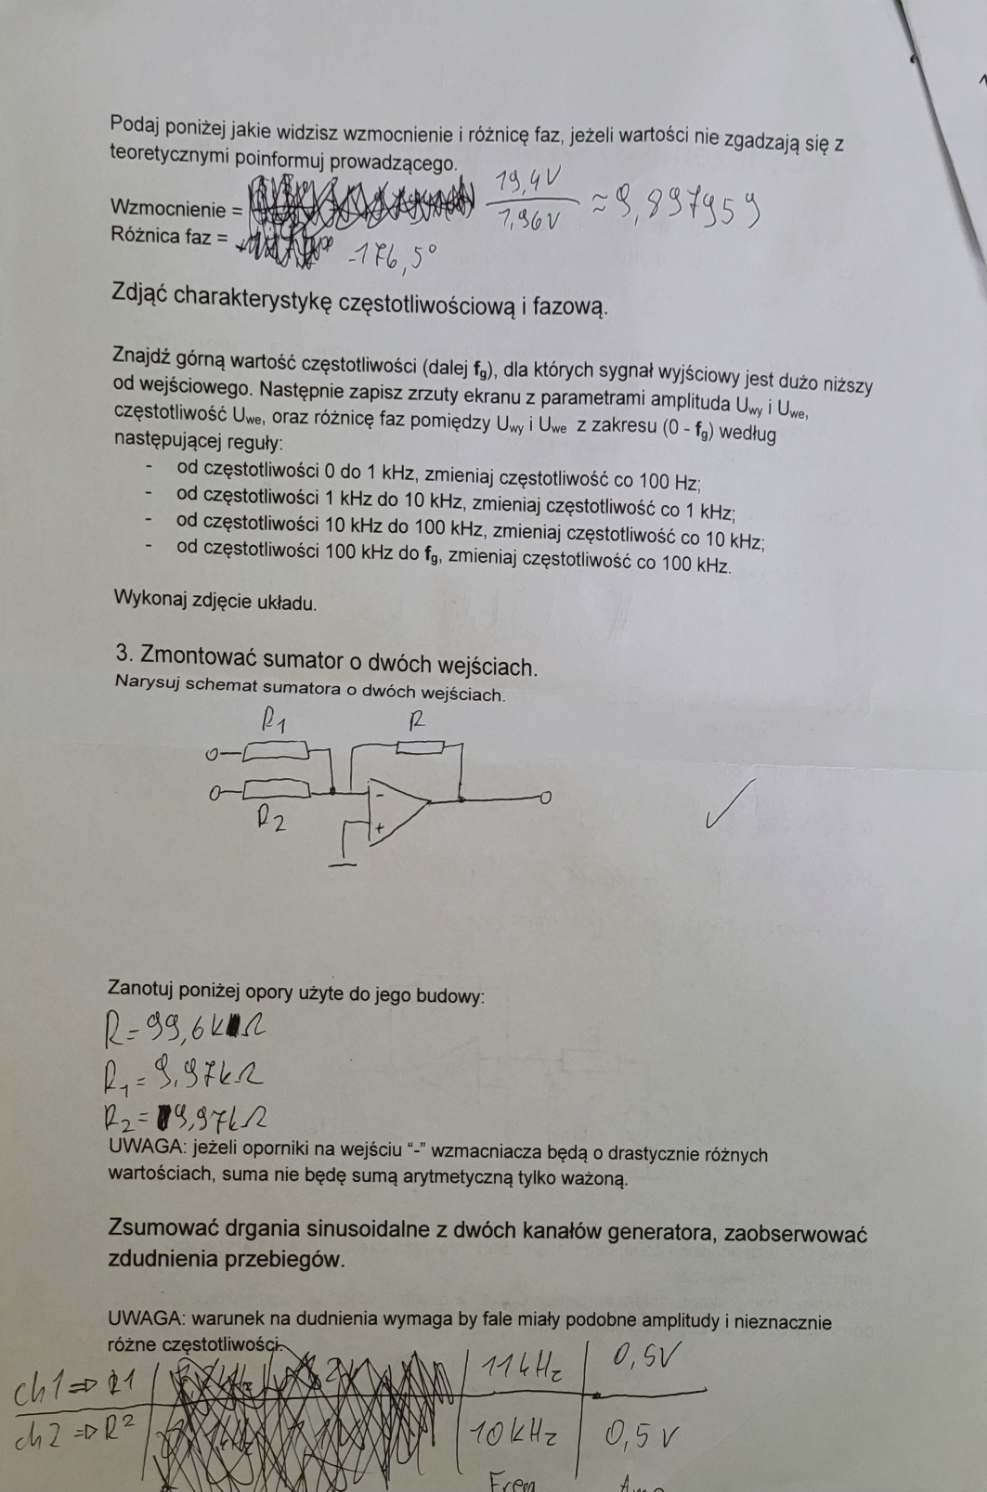 Podaj poniżej jakie widzisz wzmocnienie i różnicę faz, jeżeli wartości nie zgadzają się z
teoretycznymi poinformuj prowadzącego.
Wzmocnienie = 19,4V / 1,96V ≈ 9,897959
Różnica faz = -176,5°
Zdjąć charakterystykę częstotliwościową i fazową.
Znajdź górną wartość częstotliwości (dalej fg), dla których sygnał wyjściowy jest dużo niższy
od wejściowego. Następnie zapisz zrzuty ekranu z parametrami amplituda Uwy i Uwe,
częstotliwość Uwe, oraz różnicę faz pomiędzy Uwy i Uwe z zakresu (0 - fg) według
następującej reguły:
- od częstotliwości 0 do 1 kHz, zmieniaj częstotliwość co 100 Hz;
- od częstotliwości 1 kHz do 10 kHz, zmieniaj częstotliwość co 1 kHz;
- od częstotliwości 10 kHz do 100 kHz, zmieniaj częstotliwość co 10 kHz;
- od częstotliwości 100 kHz do fg, zmieniaj częstotliwość co 100 kHz.
Wykonaj zdjęcie układu.
3. Zmontować sumator o dwóch wejściach.
Narysuj schemat sumatora o dwóch wejściach.
R1 R
-
R2 +
Zanotuj poniżej opory użyte do jego budowy:
R = 99,6kΩ
R1 = 9,97kΩ
R2 = 9,97kΩ
UWAGA: jeżeli oporniki na wejściu “-” wzmacniacza będą o drastycznie różnych
wartościach, suma nie będę sumą arytmetyczną tylko ważoną.
Zsumować drgania sinusoidalne z dwóch kanałów generatora, zaobserwować
zdudnienia przebiegów.
UWAGA: warunek na dudnienia wymaga by fale miały podobne amplitudy i nieznacznie
różne częstotliwości.
ch1 => R1 11kHz 0,5V
ch2 => R2 10kHz 0,5V